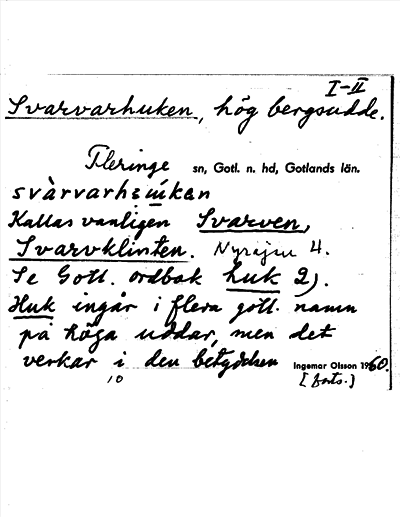 I-II
Svarvarhuken, hög bergsudde.
Fleringe sn, Gotl. n. hd, Gotlands län.
Kallas vanligen Svarven,
Svarvklinten. 4.
Se Gotl. ordbok huk 2).
Huk ingår i flera gotl. namn
på höga uddar, men det
verkar i den betydelsen Ingemar Olsson 1960.
10 [forts.]